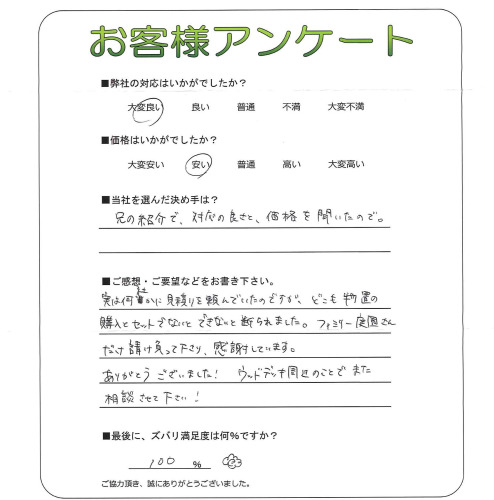 お客様アンケート
■弊社の対応はいかがでしたか？
大変良い 良い 普通 不満 大変不満
■価格はいかがでしたか？
大変安い 安い 普通 高い 大変高い
■当社を選んだ決め手は？
兄の紹介で、対応の良さと、価格を聞いたので。
■ご感想・ご要望などをお書き下さい。
実は何社かに見積りを頼んでいたのですが、どこも物置の
購入とセットでないとできないと断られました。ファミリー庭園さん
だけ請け負って下さり、感謝しています。
ありがとうございました！ ウッドデッキ周辺のことでまた
相談させて下さい！
■最後に、ズバリ満足度は何％ですか？
100 ％
ご協力頂き、誠にありがとうございました。